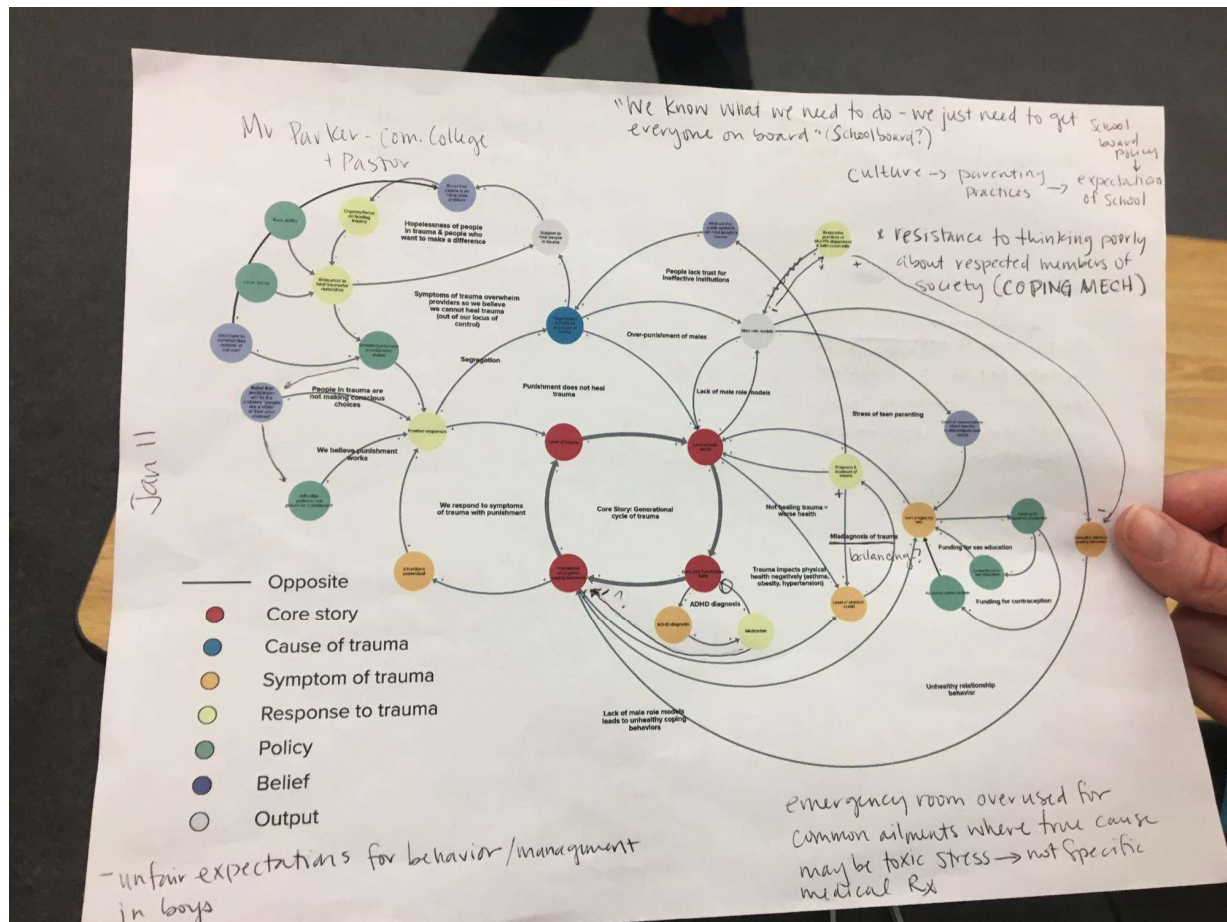 Mr Parker - Com. College
+ Pastor
"We know what we need to do - we just need to get
everyone on board" (Schoolboard?)
School
board
policy
culture → parenting
practices → expectation
of school
* resistance to thinking poorly
about respected members of
society (COPING MECH)
Jan 11
Hopelessness of people
in trauma & people who
want to make a difference
Support to
heal people
in trauma
Symptoms of trauma overwhelm
providers so we believe
we cannot heal trauma
(out of our locus of
control)
People lack trust for
ineffective institutions
Over-punishment of males
Male role models
Segregation
Punishment does not heal
trauma
Lack of male role models
People in trauma are
not making conscious
choices
We believe punishment
works
Punitive responses
Level of trauma
Stress of teen parenting
Diagnosis &
treatment of
trauma
We respond to symptoms
of trauma with punishment
Core Story: Generational
cycle of trauma
Not healing trauma =
worse health
Misdiagnosis of trauma
balancing?
Funding for sex education
Funding for contraception
Trauma impacts physical
health negatively (asthma,
obesity, hypertension)
Level of physical
health
ADHD diagnosis
ADHD diagnosis
Medication
Unhealthy relationship
behavior
Lack of male role models
leads to unhealthy coping
behaviors
Opposite
Core story
Cause of trauma
Symptom of trauma
Response to trauma
Policy
Belief
Output
- unfair expectations for behavior/managment
in boys
emergency room overused for
common ailments where true cause
maybe toxic stress → not specific
medical Rx